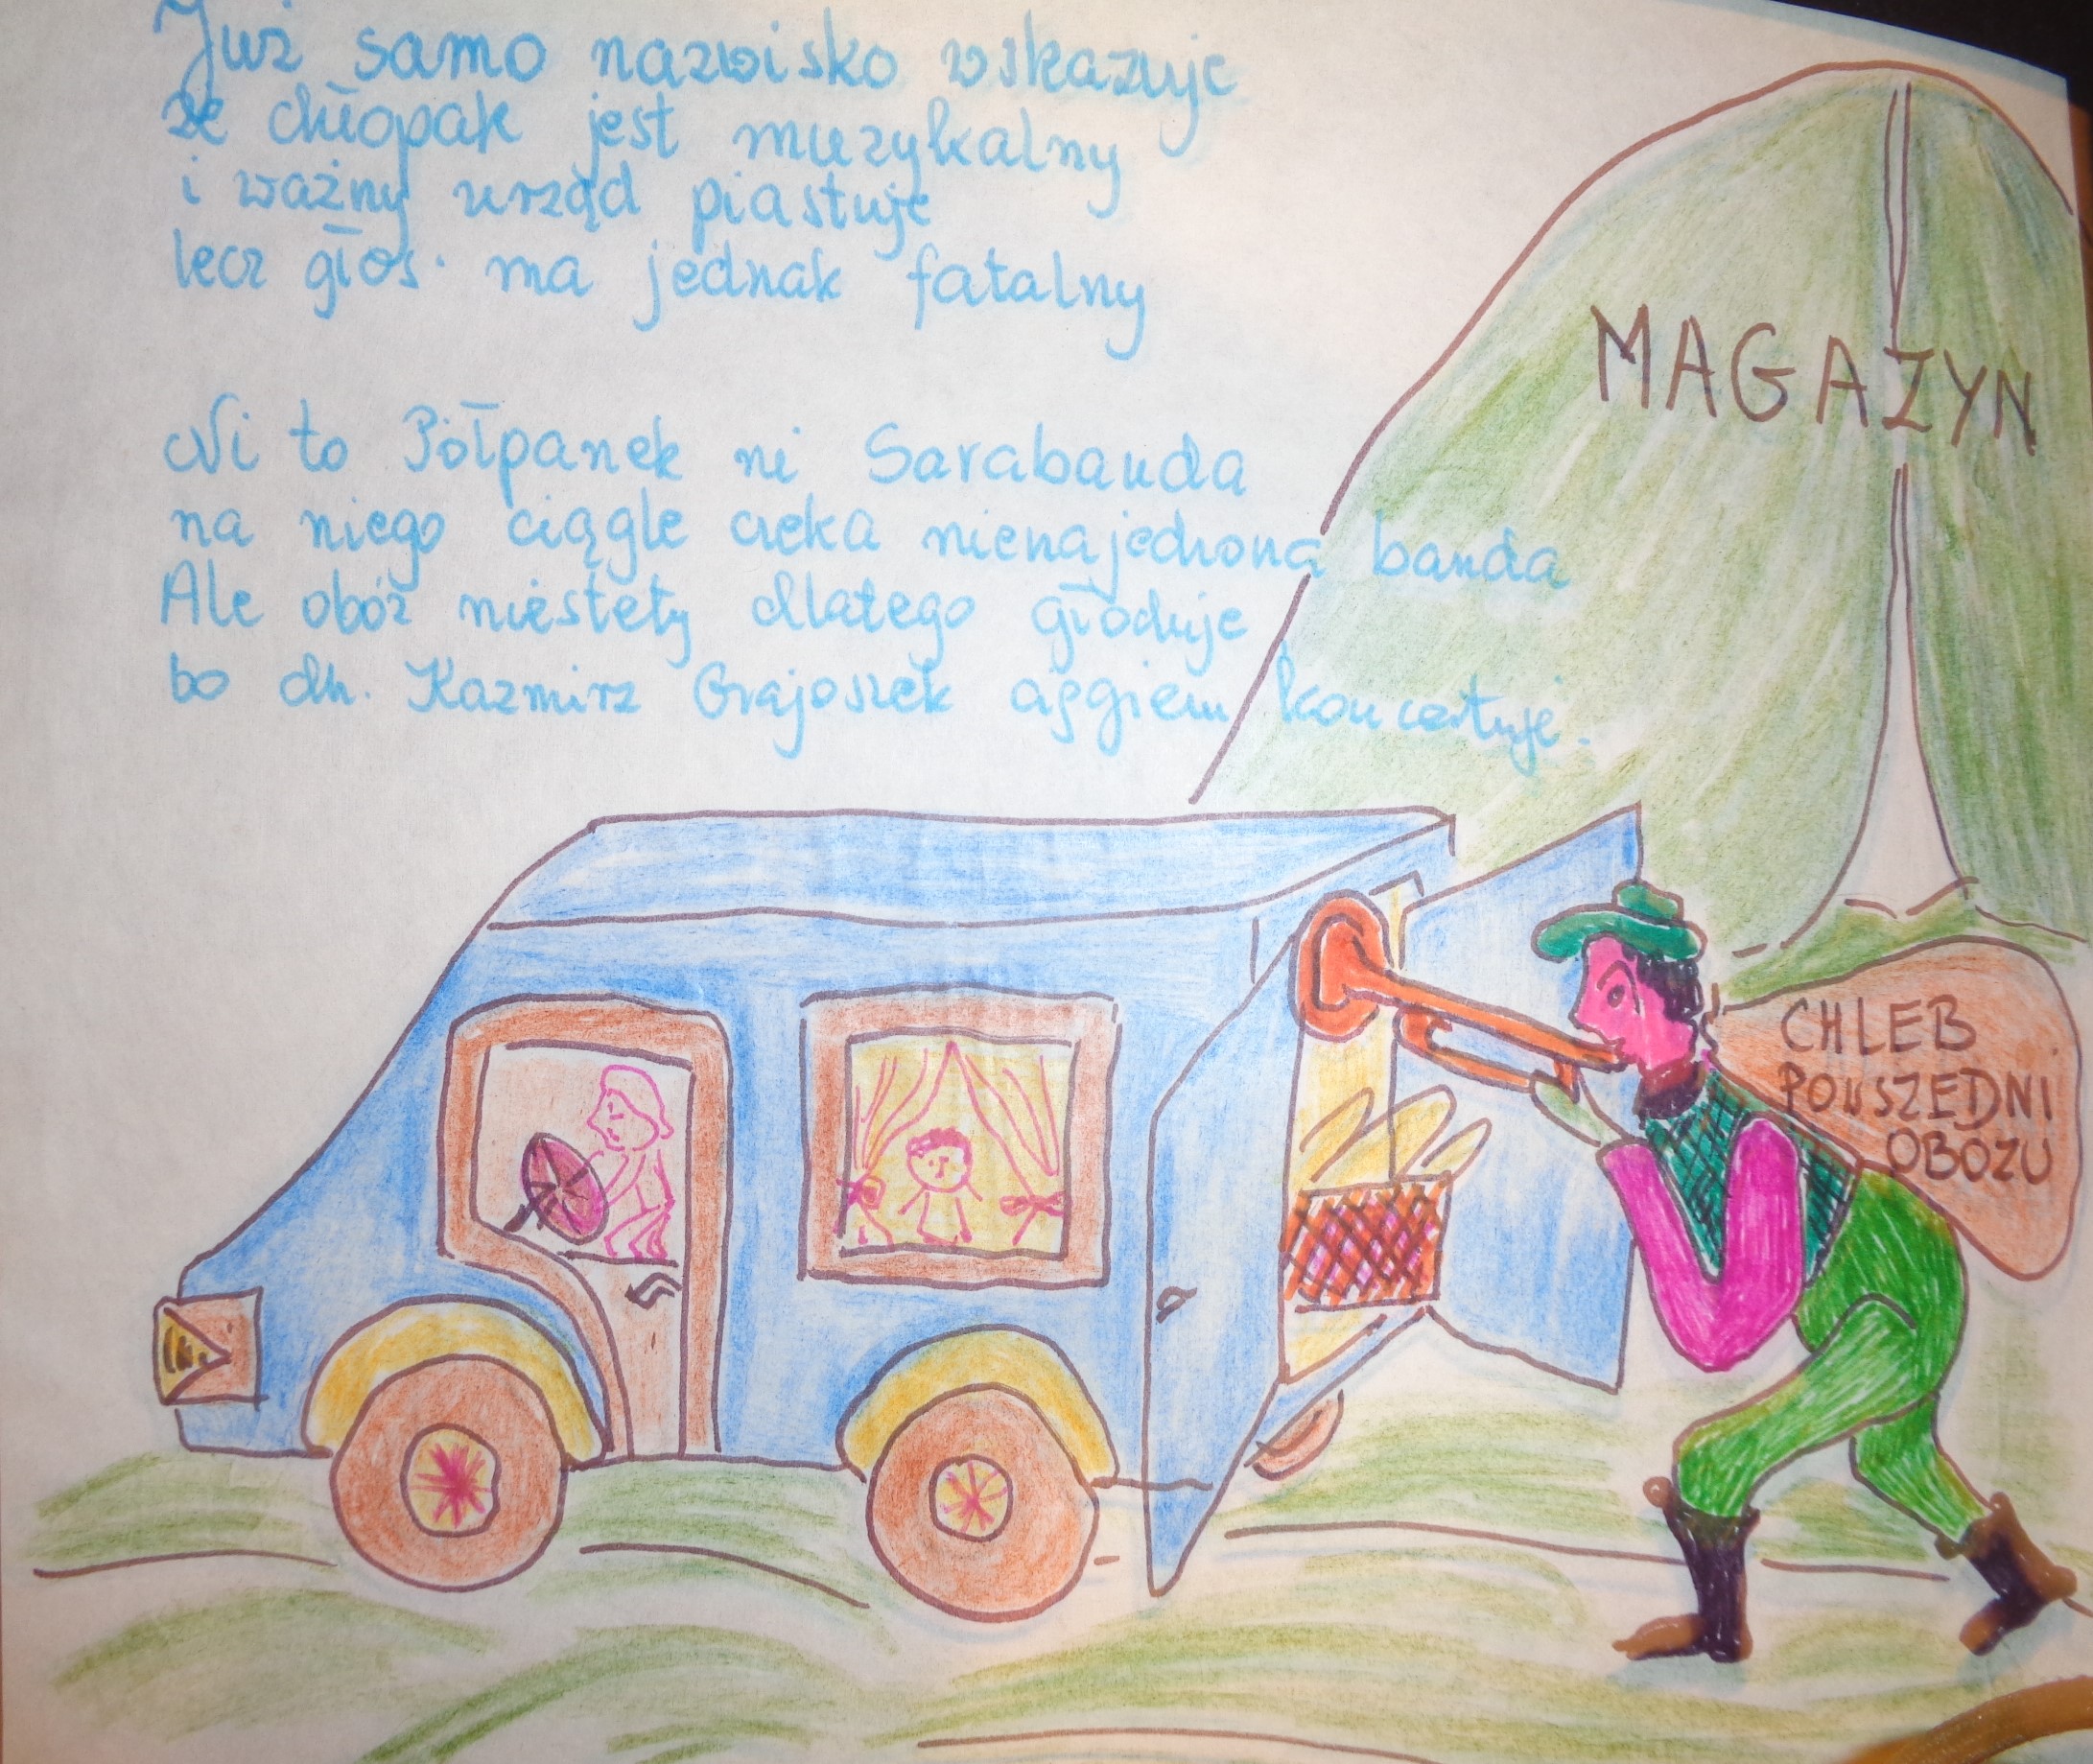 Już samo nazwisko wskazuje
że chłopak jest muzykalny
i ważny urząd piastuje
lecz głos ma jednak fatalny
Ni to Półpanek ni Sarabanda
na niego ciągle czeka nienajedzona banda
Ale obóz niestety dlatego głoduje
bo dh. Kazmirz Grajoszek ciągiem koncertuje.
MAGAZYN
CHLEB
POWSZEDNI
OBOZU